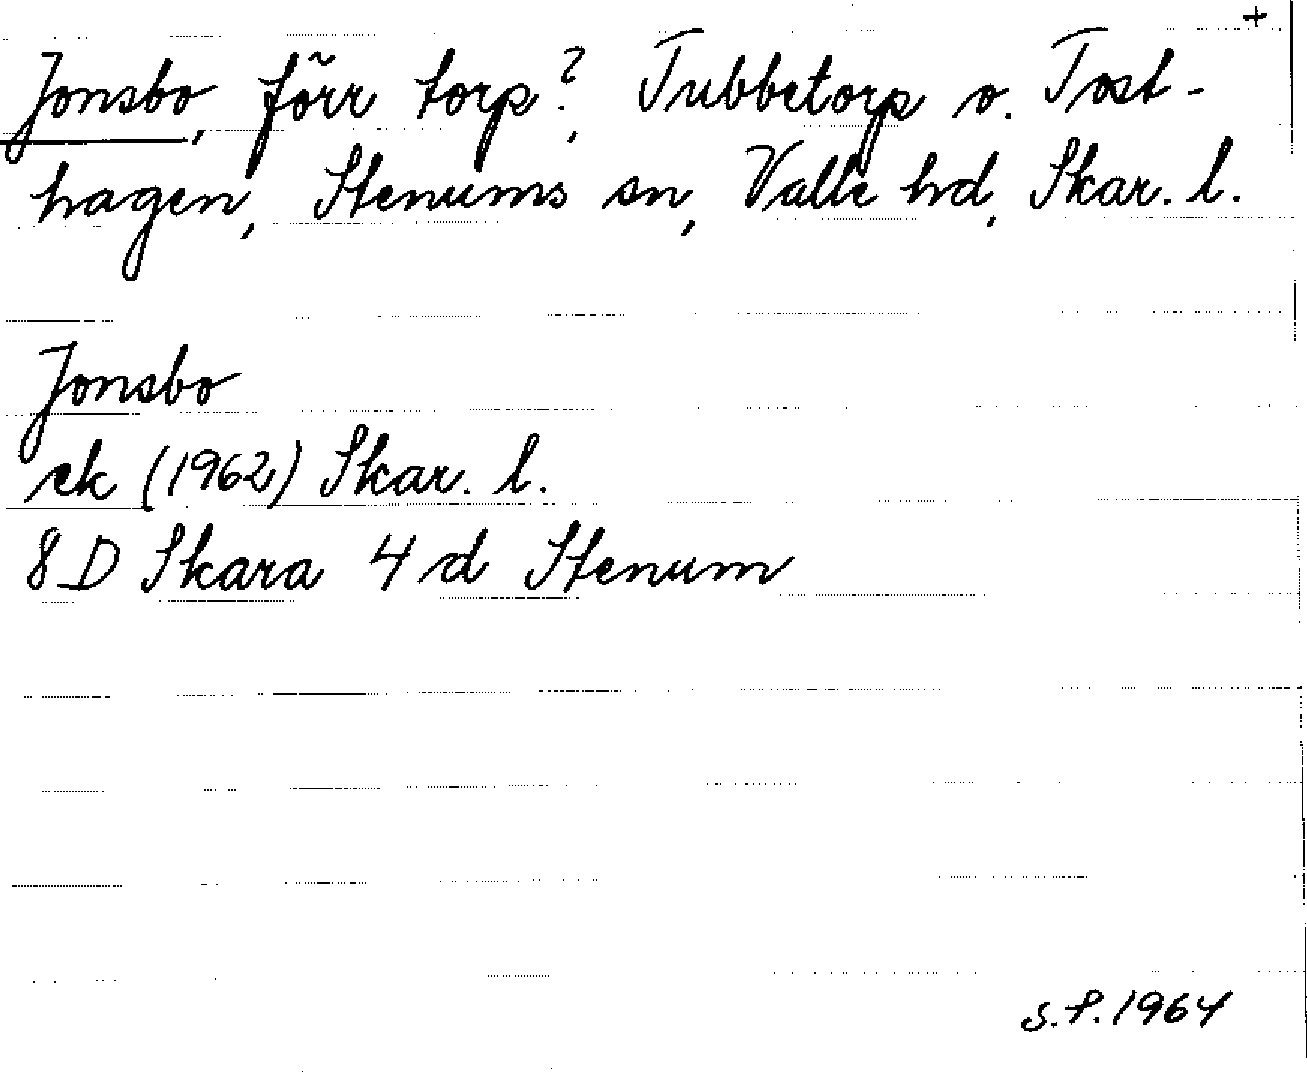 +
Jonsbo, förr torp?, Tubbetorp o. Tost-
hagen, Stenums sn, Valle hd, Skar. l.
Jonsbo
ek (1962) Skar. l.
8D Skara 4d Stenum
S.P. 1964